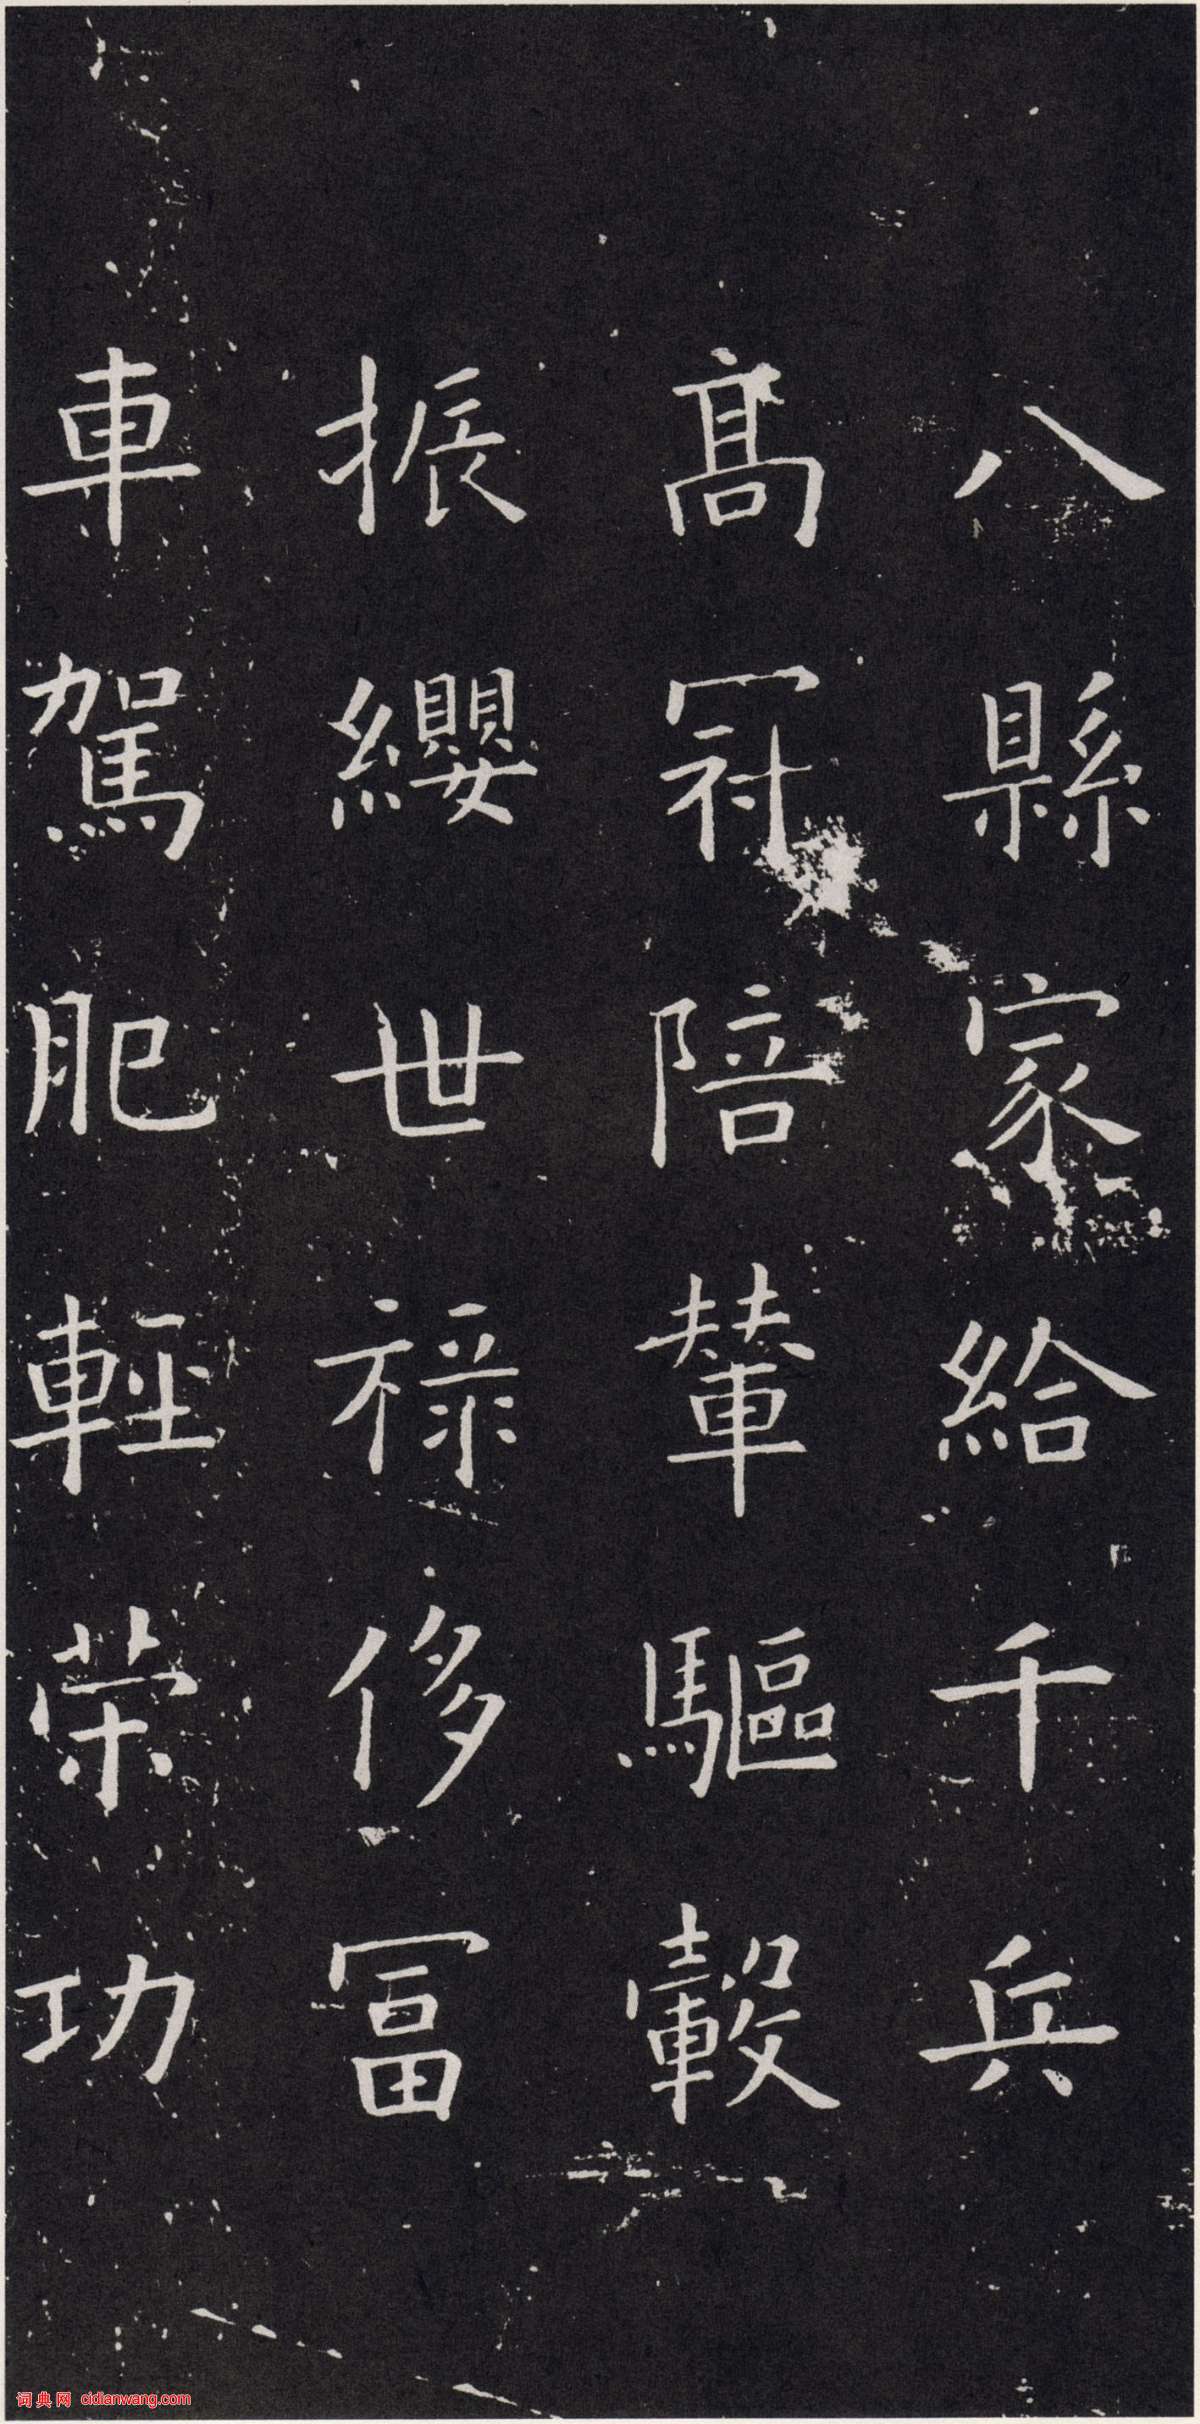 八縣家給千兵
髙冠陪輦驅轂
振纓世禄侈冨
車駕肥輕策功
词典网 cidianwang.com